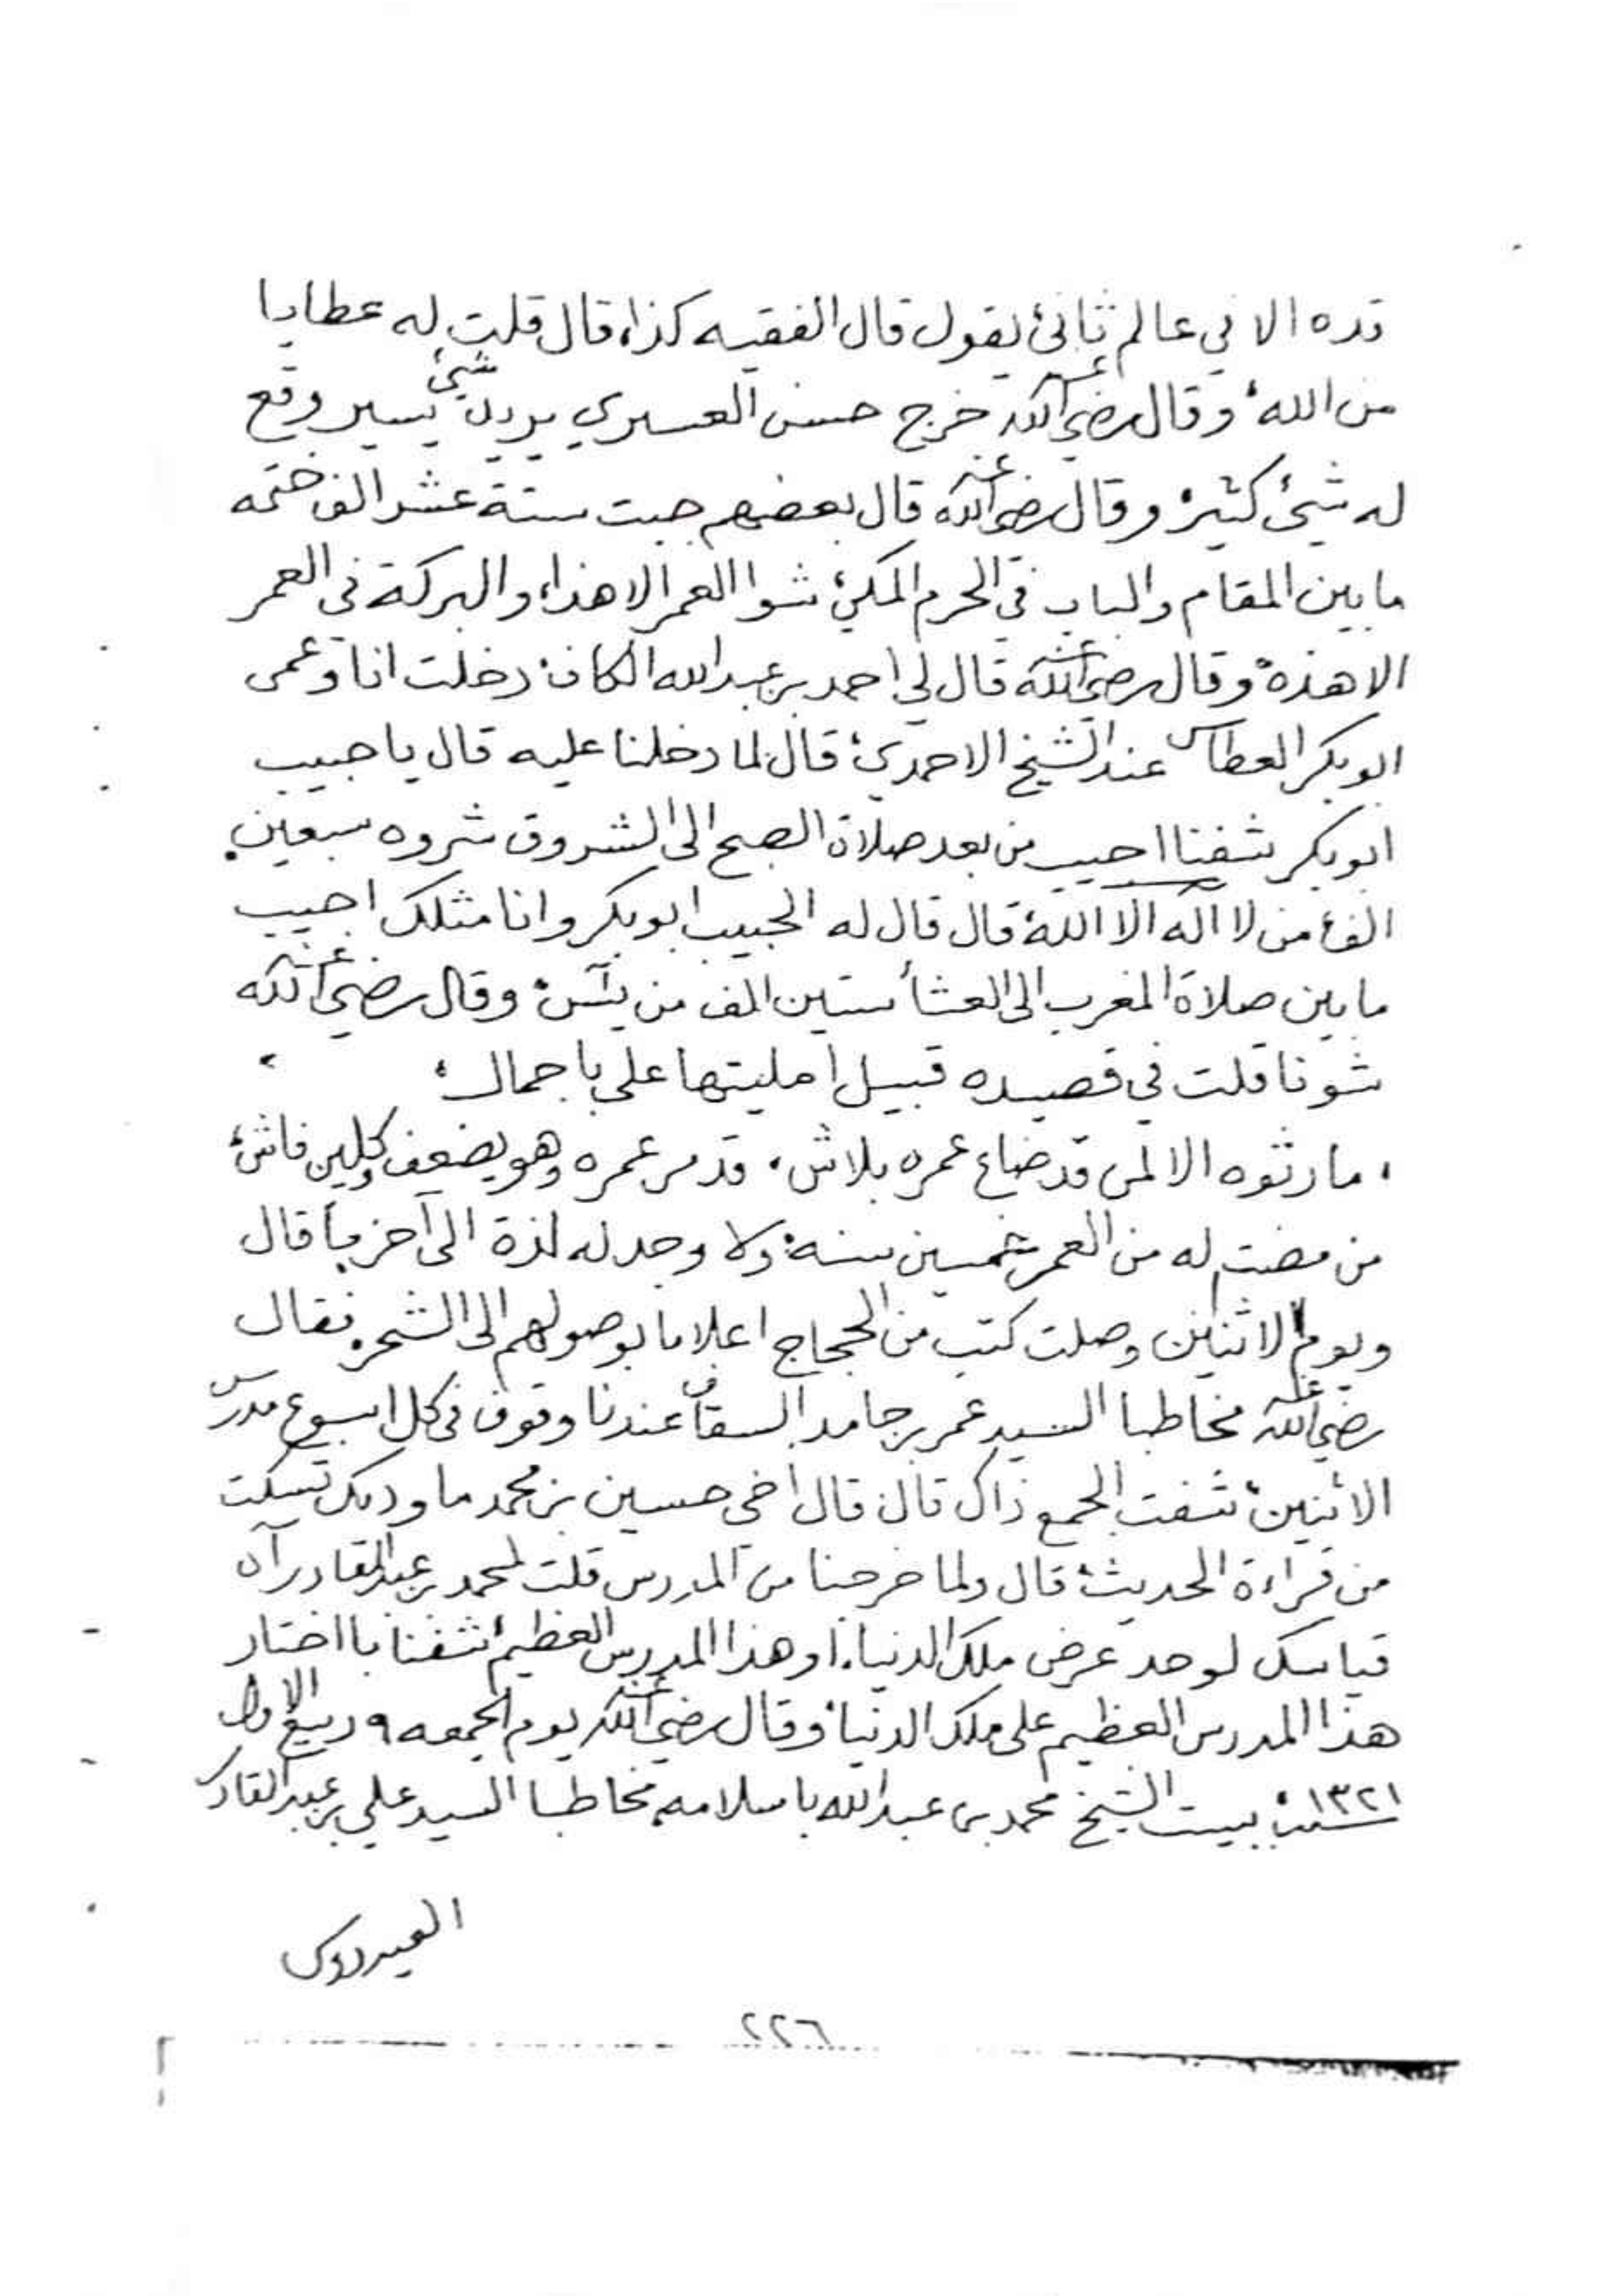 قده الا في عالم ثاني يقول قال الفقيه كذا، قال قلت له عطايا
من الله، وقال رضي الله عنه خرج حسن العسيري يريد شيئ يسير وقع
له شيئ كثير، وقال رضي الله عنه قال بعضهم جبت ستة عشر الف ختمه
ما بين المقام والباب في الحرم المكي، شوا العمر الا هذا، والبركة في العمر
الا هذه، وقال رضي الله عنه قال لي احمد بن عبد الله الكاف، دخلت انا وعمي
ابوبكر العطاس عند الشيخ الاحمدي، قال لما دخلنا عليه قال يا حبيب
ابوبكر شفنا اجيب من بعد صلاة الصبح الى الشروق شروه سبعين
الف، من لا اله الا الله، قال قال له الحبيب ابوبكر وانا مثلك اجيب
ما بين صلاة المغرب الى العشأ ستين الف من يس، وقال رضي الله عنه
شونا قلت في قصيده قبيل امليتها على با جمال،
، ما رثوه الا لمن قد ضاع عمره بلاش، قد مر عمره وهو يضعف فاش،
من مضت له من العمر خمسين سنة، ولا وجد له لذة الى آخر ما قال
ويوم الاثنين وصلت كتب من الحجاج اعلاما بوصولهم الى الشحر، فقال
رضي الله عنه مخاطبا السيد عمر بن حامد السقاف عندنا وقوف في كل اسبوع مدرس
الاثنين، شفت الجمع ذاك قال، قال اخي حسين بن محمد ما ودك تسكت
من قراءة الحديث، قال ولما خرجنا من المدرس قلت لمحمد بن عبد القادر آه
قياسك لوحد عرض ملك الدنيا، او هذا المدرس العظيم، شفنا با اختار
هذا المدرس العظيم على ملك الدنيا، وقال رضي الله عنه يوم الجمعه ٩ ربيع الاول
سنة ١٣٢١، ببيت الشيخ محمد بن عبد الله باسلامه، مخاطبا السيد علي بن عبد القادر
العيدروس
٢٢٦